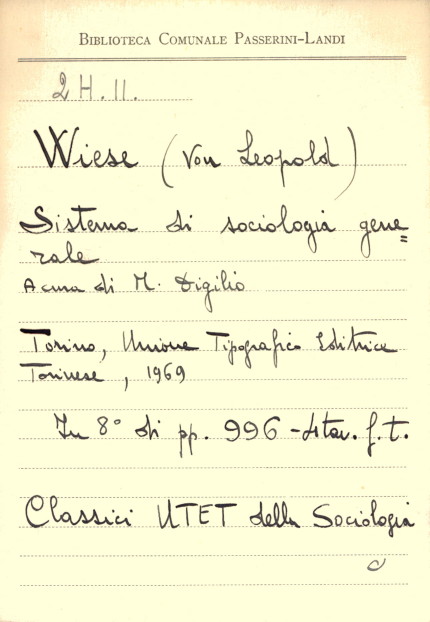 BIBLIOTECA COMUNALE PASSERINI-LANDI
2 H. 11.
Wiese (Von Leopold)
Sistema di sociologia gene=
rale
A cura di M. Digilio
Torino, Unione Tipografico Editrice
Torinese, 1969
In 8° di pp. 996 - 4 tav. f. t.
Classici UTET della Sociologia